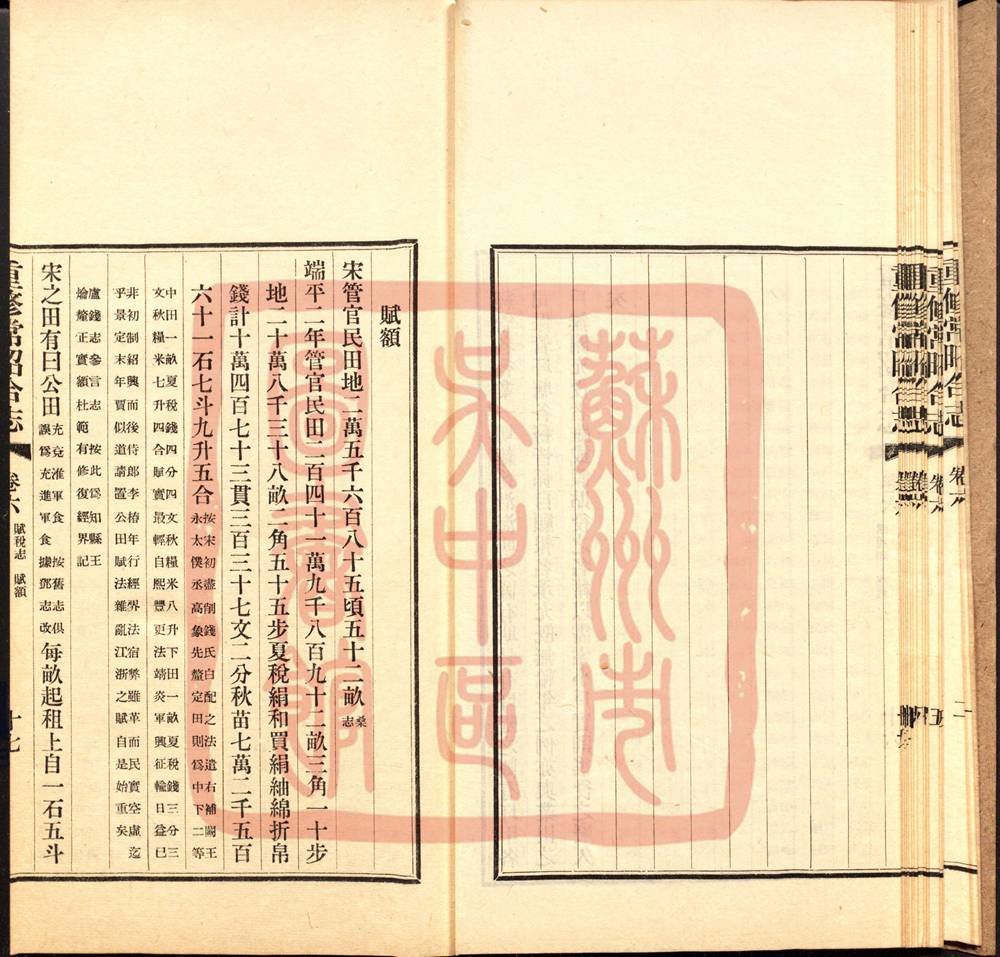 重修常昭合志 卷六 二
蘇州市
吳中區
圖書館
賦額
宋管官民田地二萬五千六百八十五頃五十二畝桑志
端平二年管官民田二百四十一萬九千八百九十二畝三角一十步
地二十萬八千三十八畝二角五十五步夏稅絹和買絹紬綿折帛
錢計十萬四百七十三貫三百三十七文二分秋苗七萬二千五百
六十一石七斗九升五合按宋初盡削錢氏白配之法遣右補闕王
永太僕丞高象先釐定田則爲中下二等
中田一畝夏稅錢四分四文秋糧米八升下田一畝夏稅錢三分三
文秋糧米七升四合賦實最輕自熙豐更法靖炎軍興征輸日益已
非初制紹興而後侍郎李椿年行經界法宿弊雖革而民實空虛迄
平景定末年賈似道請置公田賦法雜亂江浙之賦自是始重矣
盧錢志參言志 按此爲知縣王
爚釐正實額杜範有修復經界記
宋之田有曰公田充兗淮軍食 按舊志俱
誤爲充進軍食據鄧志改每畝起租上自一石五斗
重修常昭合志 卷六 賦稅志 賦額 十七